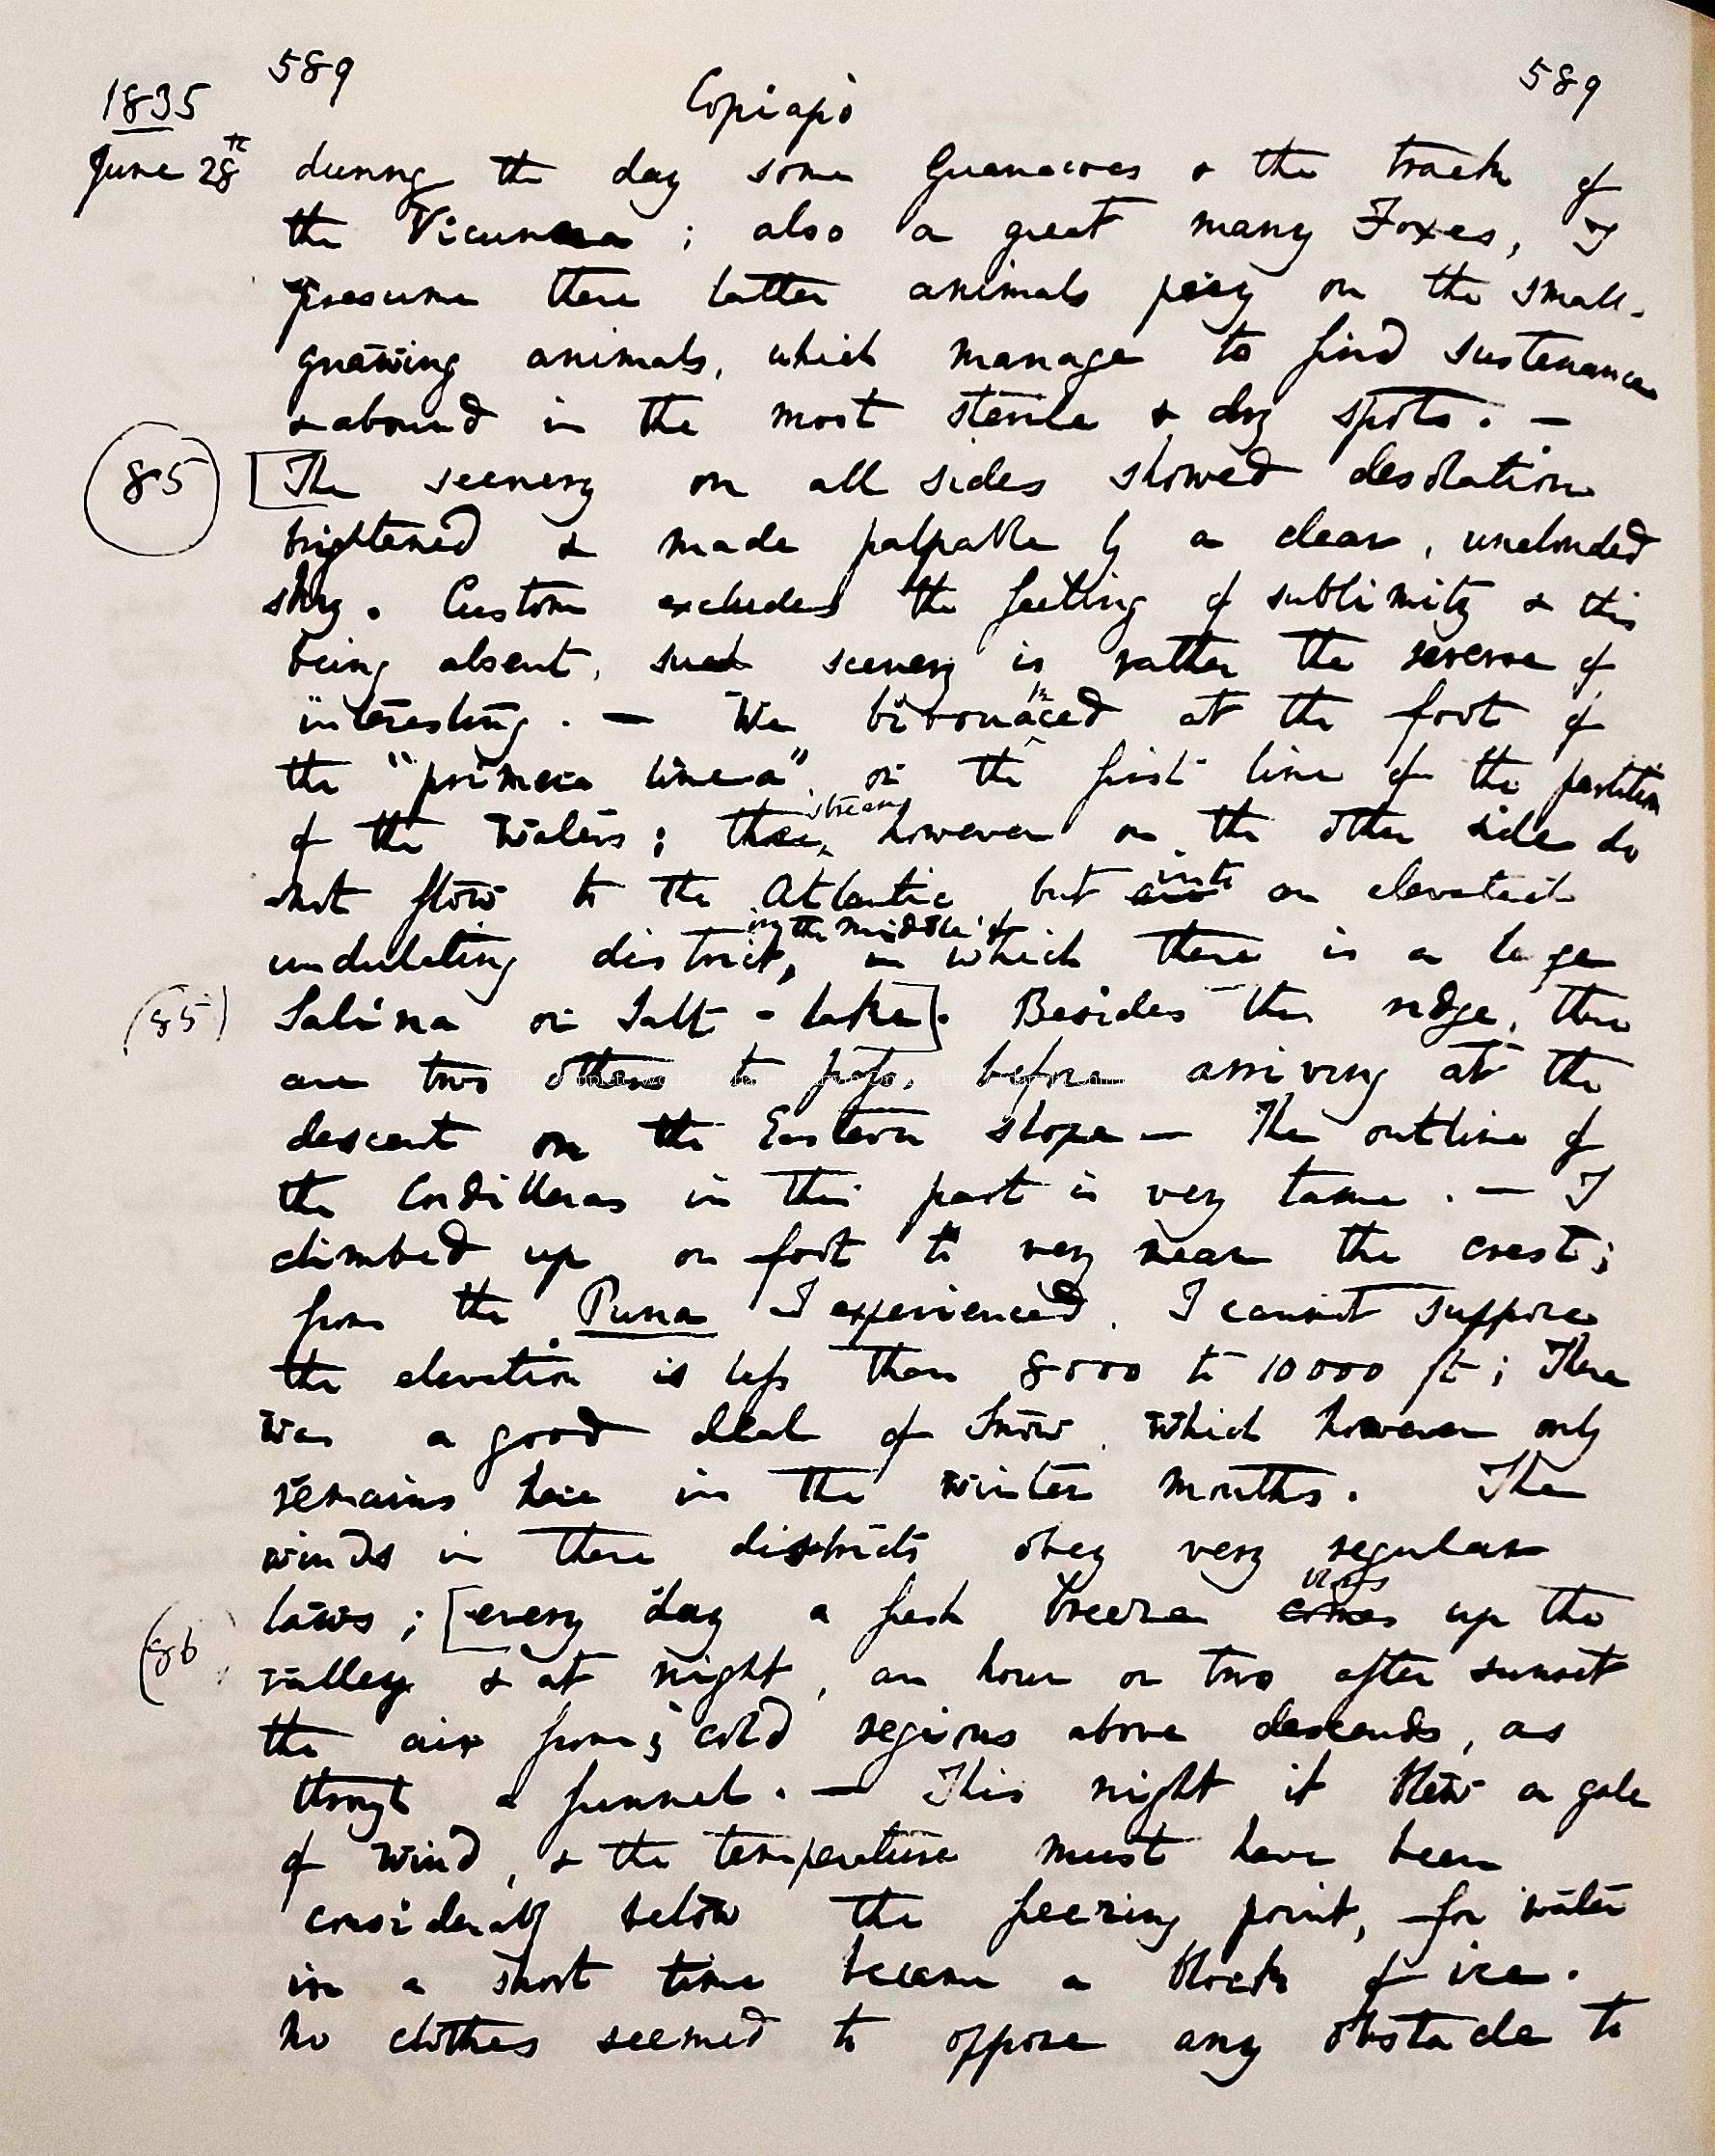 589 Copiapò 589
1835
June 28th during the day some Guanacoes & the track of
the Vicunna ; also a great many Foxes, I
presume these latter animals prey on the small-
gnawing animals, which manage to find sustenance
& abound in the most sterile & dry spots. —
(85) [The scenery on all sides showed desolation
brightened & made palpable by a clear, unclouded
sky. Custom excludes the feeling of sublimity & this
being absent, such scenery is rather the reverse of
interesting. — We bivouacked at the foot of
the "primera linea", or the first line of the partition
of the waters; these streams, however on the other side do
not flow to the Atlantic but into an elevated
undulating district, in the middle of which there is a large
(85) Salina or Salt-lake]. Besides this ridge, there
are two others to pass, before arriving at the
descent on the Eastern slope — The outline of
the Cordilleras in this part is very tame. — I
climbed up on foot to very near the crest;
from the Puna I experienced, I cannot suppose
the elevation is less than 8000 to 10000 ft; There
was a good deal of snow, which however only
remains here in the winter months. The
winds in these districts obey very regular
laws; [every day a fresh breeze comes blows up the
(86) valley & at night, an hour or two after sunset
the air from cold regions above descends, as
through a funnel. — This night it blew a gale
of wind, & the temperature must have been
considerably below the freezing point, for water
in a short time became a block of ice.
No clothes seemed to oppose any obstacle to